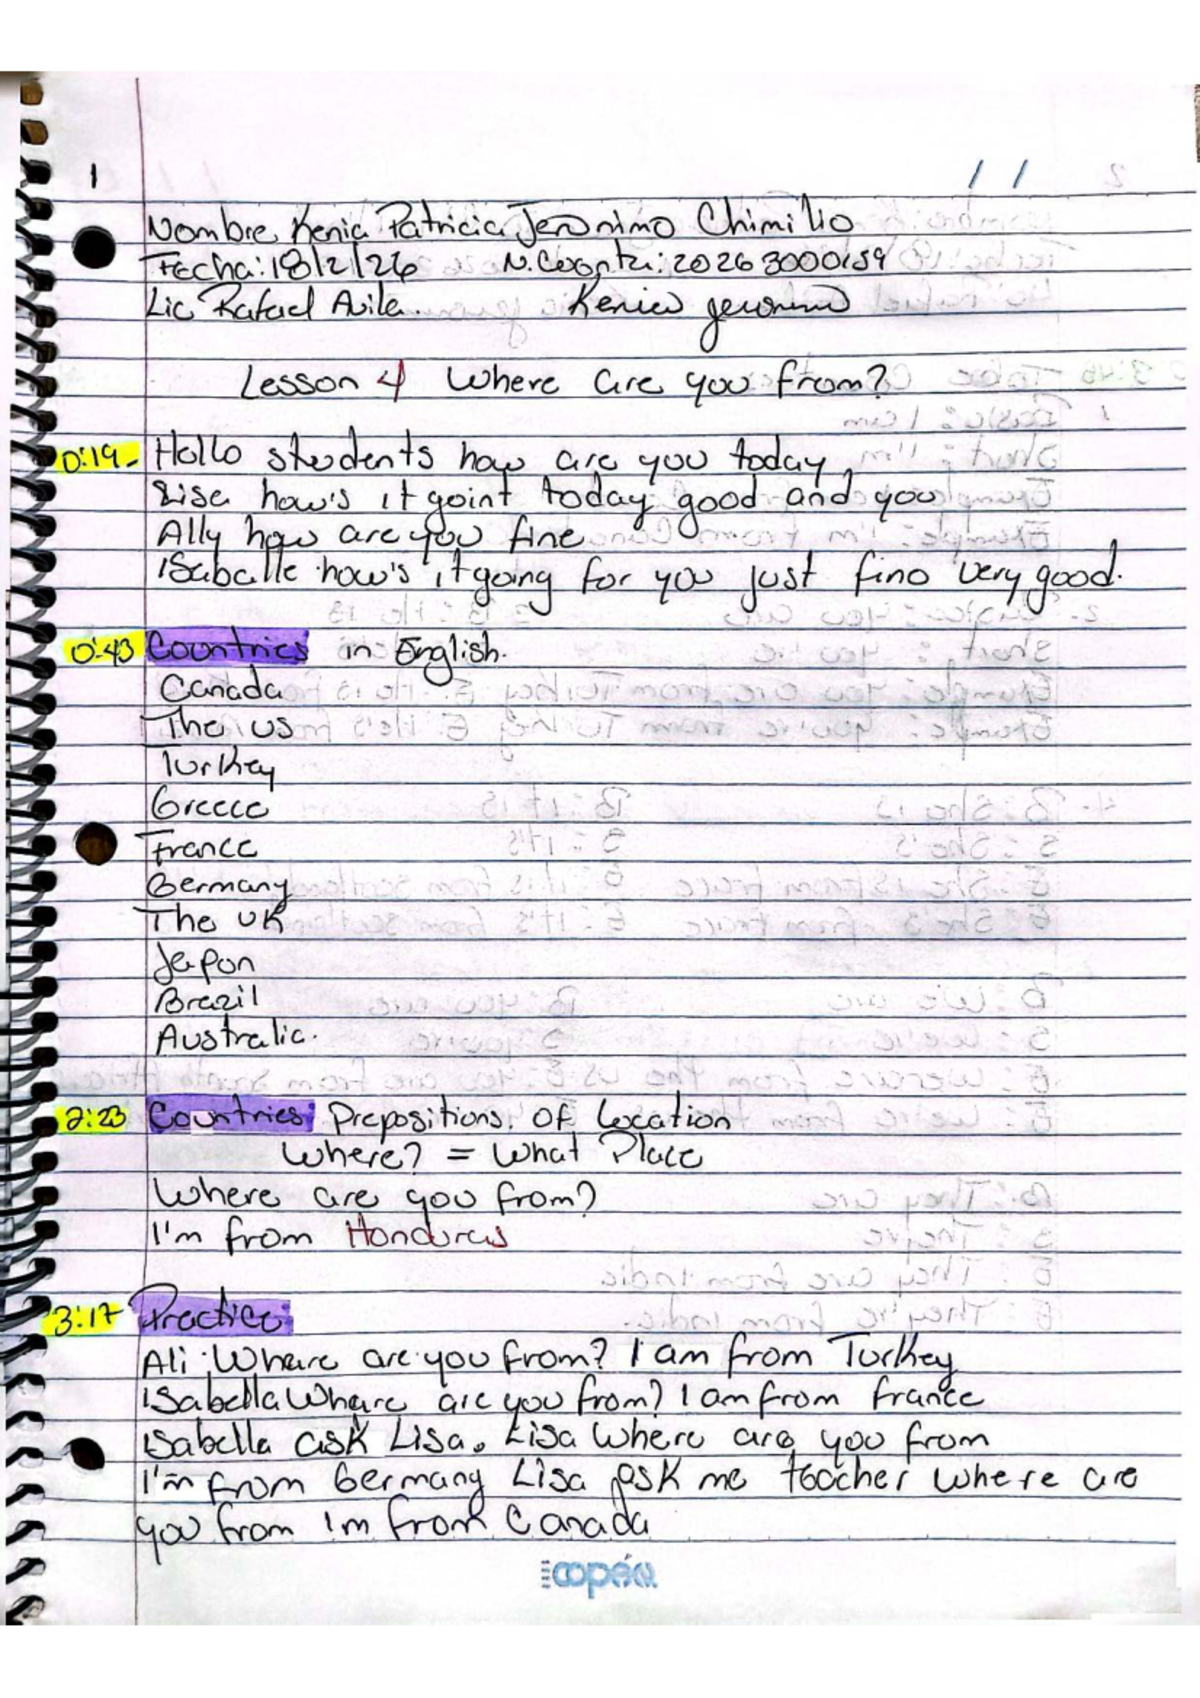 1 / /
Nombre Kenia Patricia Jeronimo Chimilio
Fecha: 18/2/26 N. Cuenta: 20263000159
Lic Rafael Avila. Kenia Jeronimo
Lesson 4 Where are you from?
0:19- Hello students how are you today,
Lisa how's it goint today good and you
Ally how are you fine
ISabelle how's it going for you just fine very good.
0:43 Countries in English.
Canada
The US
Turkey
Greece
France
Germany
The UK
Japon
Brazil
Australia.
2:23 Countries: Prepositions. OF Location
Where? = What Place
Where are you from?
I'm from Honduras
3:17 Practice
Ali Where are you from? I am from Turkey
ISabella Where are you from? I am from France
ISabella ask Lisa. Lisa Where are you from
I'm from Germany Lisa ask me teacher where are
you from Im from Canada
copán